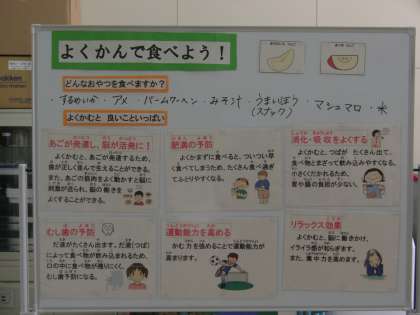 よくかんで食べよう！
どんなおやつを食べますか？
・するめいか ・アメ ・バームクーヘン ・みそ汁 ・うまいぼう ・マシュマロ ・米
(スナック)
よくかむと 良いこといっぱい
あごが発達し、脳が活発に！
よくかむと、あごが発達するため、
歯が正しく並んで生えることができる。
また、あごの筋肉をよく動かすと脳に
刺激が送られ、脳の働きを
よくすることができる。
肥満の予防
よくかまずに食べると、ついつい早
く食べてしまうため、たくさん食べ過ぎ
てふとりやすくなる。
消化・吸収をよくする
よくかむと、つばが たくさん出て、
食べ物とまざって飲み込みやすくなる。
小さくくだかれるため、
胃や腸の負担が少ない。
むし歯の予防
だ液がたくさん出ます。だ液(つば)
によって食べ物が飲み込まれるため、
口の中に食べ物が残りにくく、
むし歯予防になる。
運動能力を高める
かむ力を強めることで運動能力が
高まります。
リラックス効果
よくかむと、脳に働きかけ、
イライラ感が和らぎます。
また、集中力を高めます。